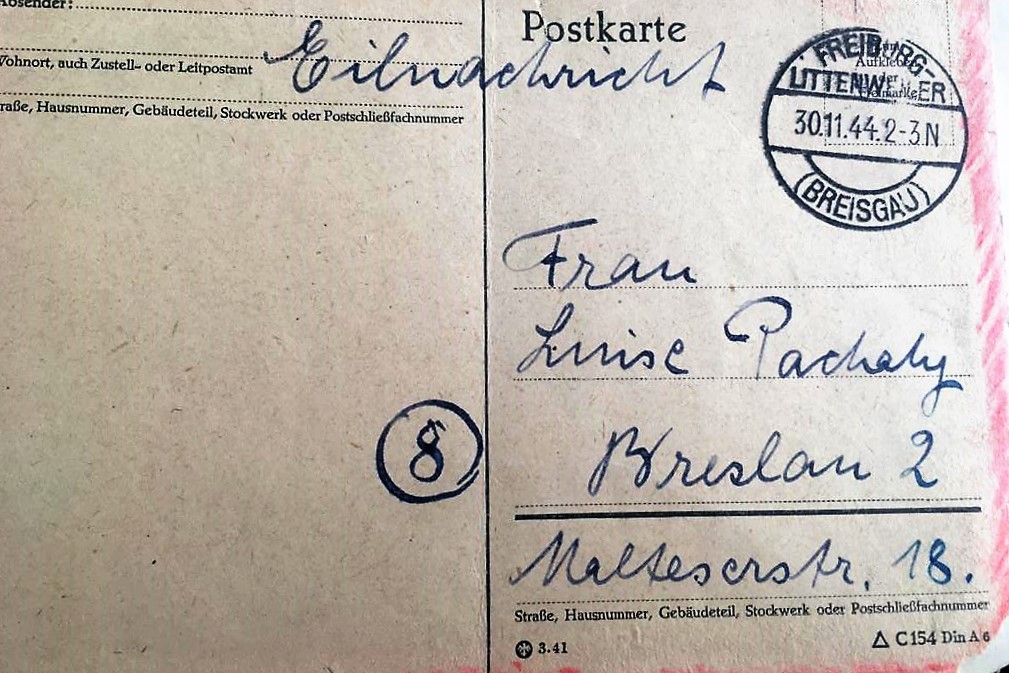 Absender:
Wohnort, auch Zustell- oder Leitpostamt
Straße, Hausnummer, Gebäudeteil, Stockwerk oder Postschließfachnummer
Eilnachricht
Postkarte
FREIBURG-
LITTENWEILER
30.11.44.2-3N
(BREISGAU)
Frau
Luise Pachaly
8
Breslau 2
Malteserstr. 18.
Straße, Hausnummer, Gebäudeteil, Stockwerk oder Postschließfachnummer
3.41
C 154 Din A 6